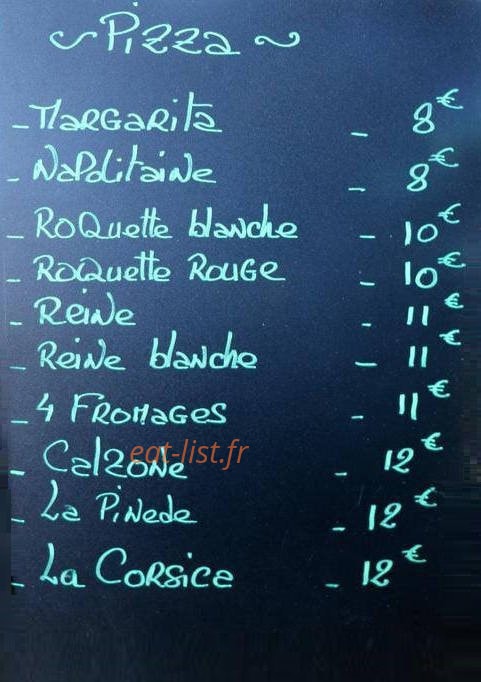 ~ Pizza ~
- MARGARita - 8€
- Napolitaine - 8€
- Roquette blanche - 10€
- Roquette Rouge - 10€
- Reine - 11€
- Reine blanche - 11€
- 4 FROMAGES - 11€
- Calzone - 12€
eat-list.fr
- La Pinede - 12€
- La Corsica - 12€